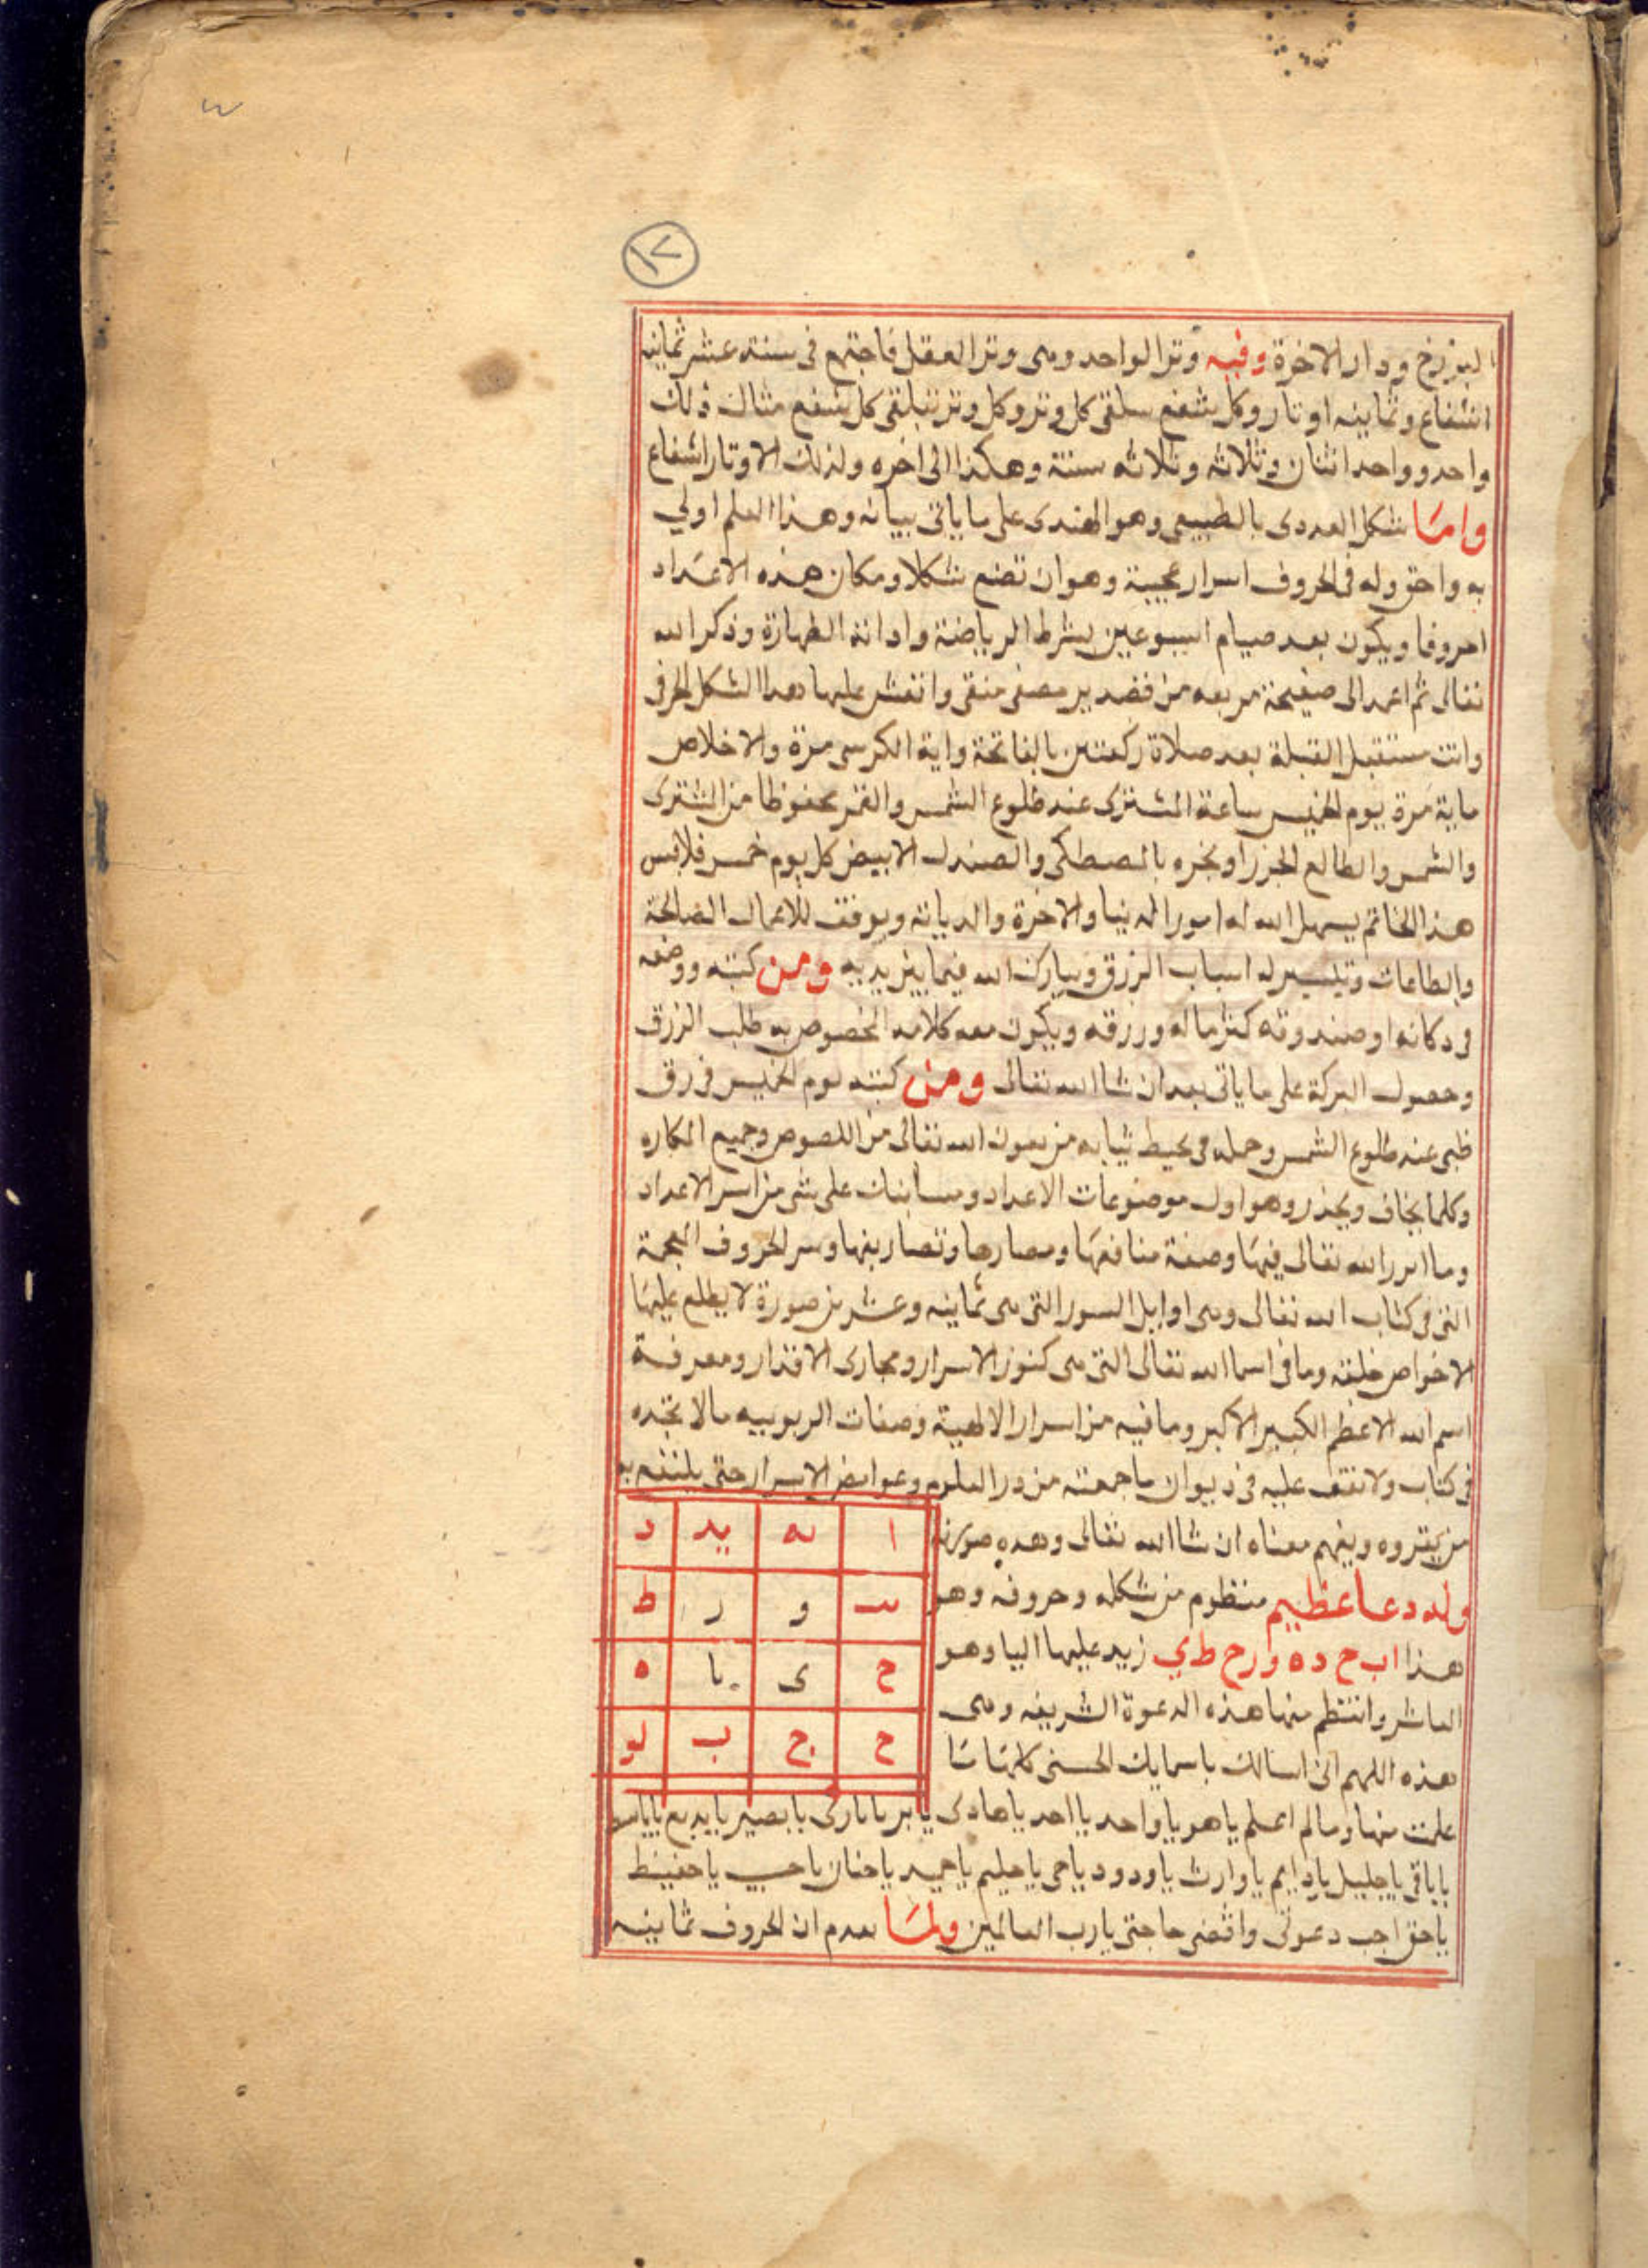 ١٧
البرزخ ودار الاخرة وفيه وتر الواحد وهى وتر العقل فاجتمع فى ستة عشر ثمانيه
اشفاع وثمانيه اوتار وكل شفع يلتقى كل وتر وكل وتر يلتقى كل شفع مثال ذلك
واحد وواحد اثنان وثلاثه وثلاثه ستة وهكذا الى اخره ولذلك الاوتار اشفاع
وامّا شكل العددى بالطبيعى وهو الهندى على ما ياتى بيانه وهذا العلم اولى
به واحق وله فى الحروف اسرار عجيبة وهو ان تضع شكلا ومكان هذه الاعداد
احروفا ويكون بعد صيام اسبوعين بشرط الرياضة وادانة الطهارة وذكر الله
تعالى ثم اعمد الى صفيحة مربعه من قصدير مصفى منقى وانقش عليها هذا الشكل الحرفى
وانت مستقبل القبلة بعد صلاة ركعتين بالفاتحة واية الكرسى مرة والاخلاص
ماية مرة يوم الخميس ساعة المشترى عند طلوع الشمس والقمر محفوظا من المشترى
والشمس والطالع الجوزا وبخره بالمصطكى والصندل الابيض كل يوم خميس فلابس
هذا الخاتم يسهل الله له امور الدنيا والاخرة والديانة ويوفق للاعمال الصالحة
والطاعات وتيسير له اسباب الرزق ويبارك الله فيما بين يديه ومن كتبه ووضعه
فى دكانه او صندوقه كثر ماله ورزقه ويكون معه كلامه المخصوص به طلب الرزق
وحصول البركة على ما ياتى بعد ان شا الله تعالى ومن كتبه يوم الخميس فى رق
ظبى عند طلوع الشمس وحمله فى محيط ثيابه من بعون الله تعالى من اللصوص وجميع المكاره
وكلما يخاف ويحذر وهو اول موضوعات الاعداد وسانبك على شى من اسر الاعداد
وما ابرز الله تعالى فيها وصفة منافعها ومصارها وتصاريفها وسر الحروف المعجمة
التى فى كتاب الله تعالى وهى اوايل السور التى هى ثمانيه وعشرين صورة لا يطلع عليها
الاخواص خلقه وما فى اسما الله تعالى التى هى كنوز الاسرار ومجارى الاقدار ومعرفة
اسم الله الاعظم الكبير الاكبر وما فيه من اسرار الالهية وصفات الربوبيه مالا تجده
فى كتاب ولا تقف عليه فى ديوان ما جمعته من در العلوم وغوامض الاسرار حتى يلنفع به
من يقروه ويفهم معناه ان شا الله تعالى وهذه صورته
وله دعا عظيم منظوم من شكله وحروفه وهو
هذا ا ب ج د ه و ز ح ط ي زيد عليها اليا وهو
العاشر وانتظم منها هذه الدعوة الشريفه وهى
هذه اللهم انى اسالك باسمايك الحسنى كلها مَا
ا يه يد د
ب و ز ط
ح ى يا ه
ح ج ب يو
علمت منها وما لم اعلم يا هو يا واحد يا احد يا هادى يا بر يا بارى يا بصير يا بديع يا باسط
يا باقى يا جليل يا دايم يا وارث يا ودود يا حى يا حليم يا حميد يا حنان يا حسيب يا حفيظ
يا حق اجب دعوتى واقضى حاجتى يا رب العالمين ولمّا تعدم ان الحروف ثمانيه